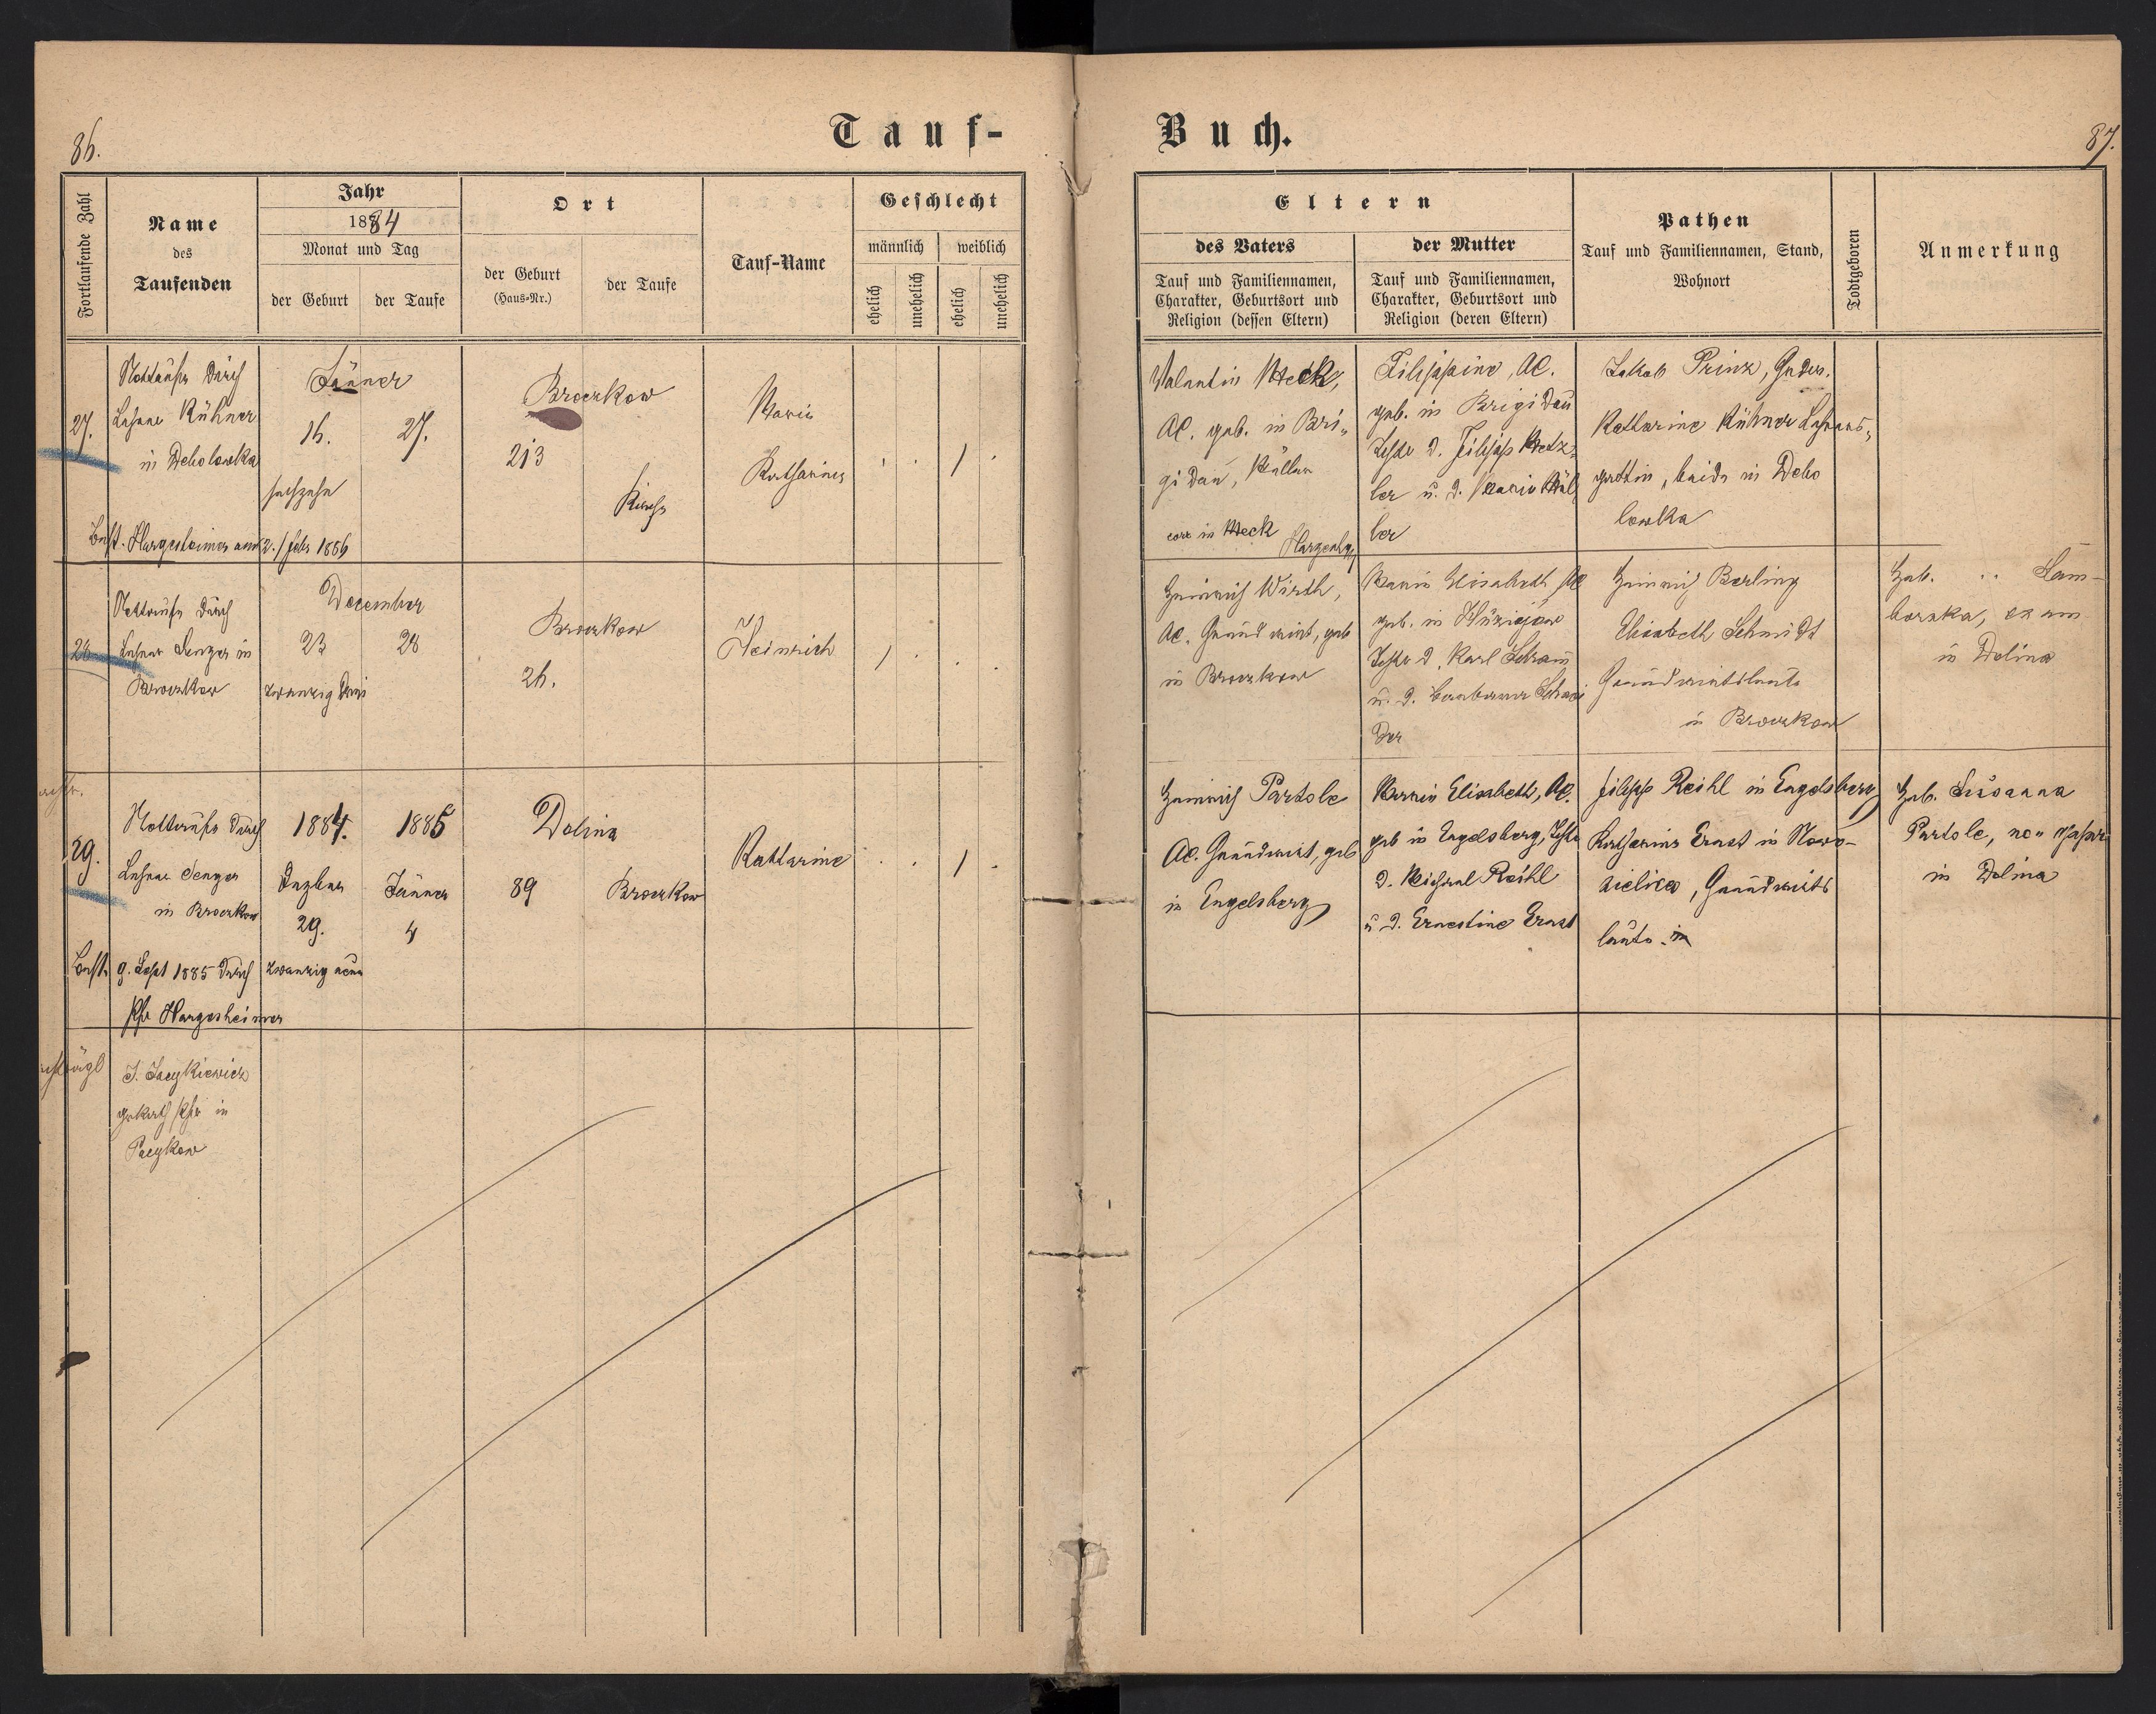 86.
Tauf-
Fortlaufende Zahl
Name
des
Taufenden
Jahr
1884
Monat und Tag
der Geburt
der Taufe
Ort
der Geburt
(Haus-Nr.)
der Taufe
Tauf-Name
Geschlecht
männlich
weiblich
ehelich
unehelich
ehelich
unehelich
27.
Nottaufe durch
Lehrer Kühner
in Debolowka
Jänner
16.
27.
sechzehn
Broczkow
213
Kirche
Maria
Katharina
Best. Hargesheimer am 2./ Febr 1886
28
Nottaufe durch
Lehrer Senger in
Broczkow
December
23
28
zwanzig drei
Broczkow
26.
Heinrich
29.
Nottaufe durch
Lehrer Senger
in Broczkow
1884.
1885
Dezber
Jänner
29.
4
zwanzig neun
Dolina
89
Broczkow
Katharine
Best. 9. Sept 1885 durch
Pfr Hargesheimer
J. Jacykiewicz
grkath Pfr in
Pacykow
Buch.
87.
Eltern
des Vaters
Tauf und Familiennamen,
Charakter, Geburtsort und
Religion (dessen Eltern)
der Mutter
Tauf und Familiennamen,
Charakter, Geburtsort und
Religion (deren Eltern)
Pathen
Tauf und Familiennamen, Stand,
Wohnort
Todtgeboren
Anmerkung
Valentin Meck,
AC. geb. in Bri-
gidau, Müller
in Meck
Filippine, AC.
geb. in Brigidau
Tochter d. Filipp Metz-
ler u. d. Maria Mül
ler
Jakob Prinz,
Katharine Kühner Lehrers-
gattin, beide in Debo
lowka
Heinrich Wirth,
AC. Grundwirt, geb
in Broczkow
Maria Elisabeth AC
geb. in
Tochter d. Karl Schram
u. d. Barbara Schnei
der
Heinrich Berling
Elisabeth Schmidt
Grundwirtsleute
in Broczkow
Heb.
in Dolina
Heinrich Partole
AC. Grundwirt, geb
in Engelsberg
Maria Elisabeth, AC.
geb in Engelsberg, Tochter
d. Michael Reihl
u d. Ernestine Ernst
Filipp Reihl in Engelsberg
Katharina Ernst in Nowo-
sielica, Grundwirts
leute. in
Heb. Susanna
Partole,
in Dolina